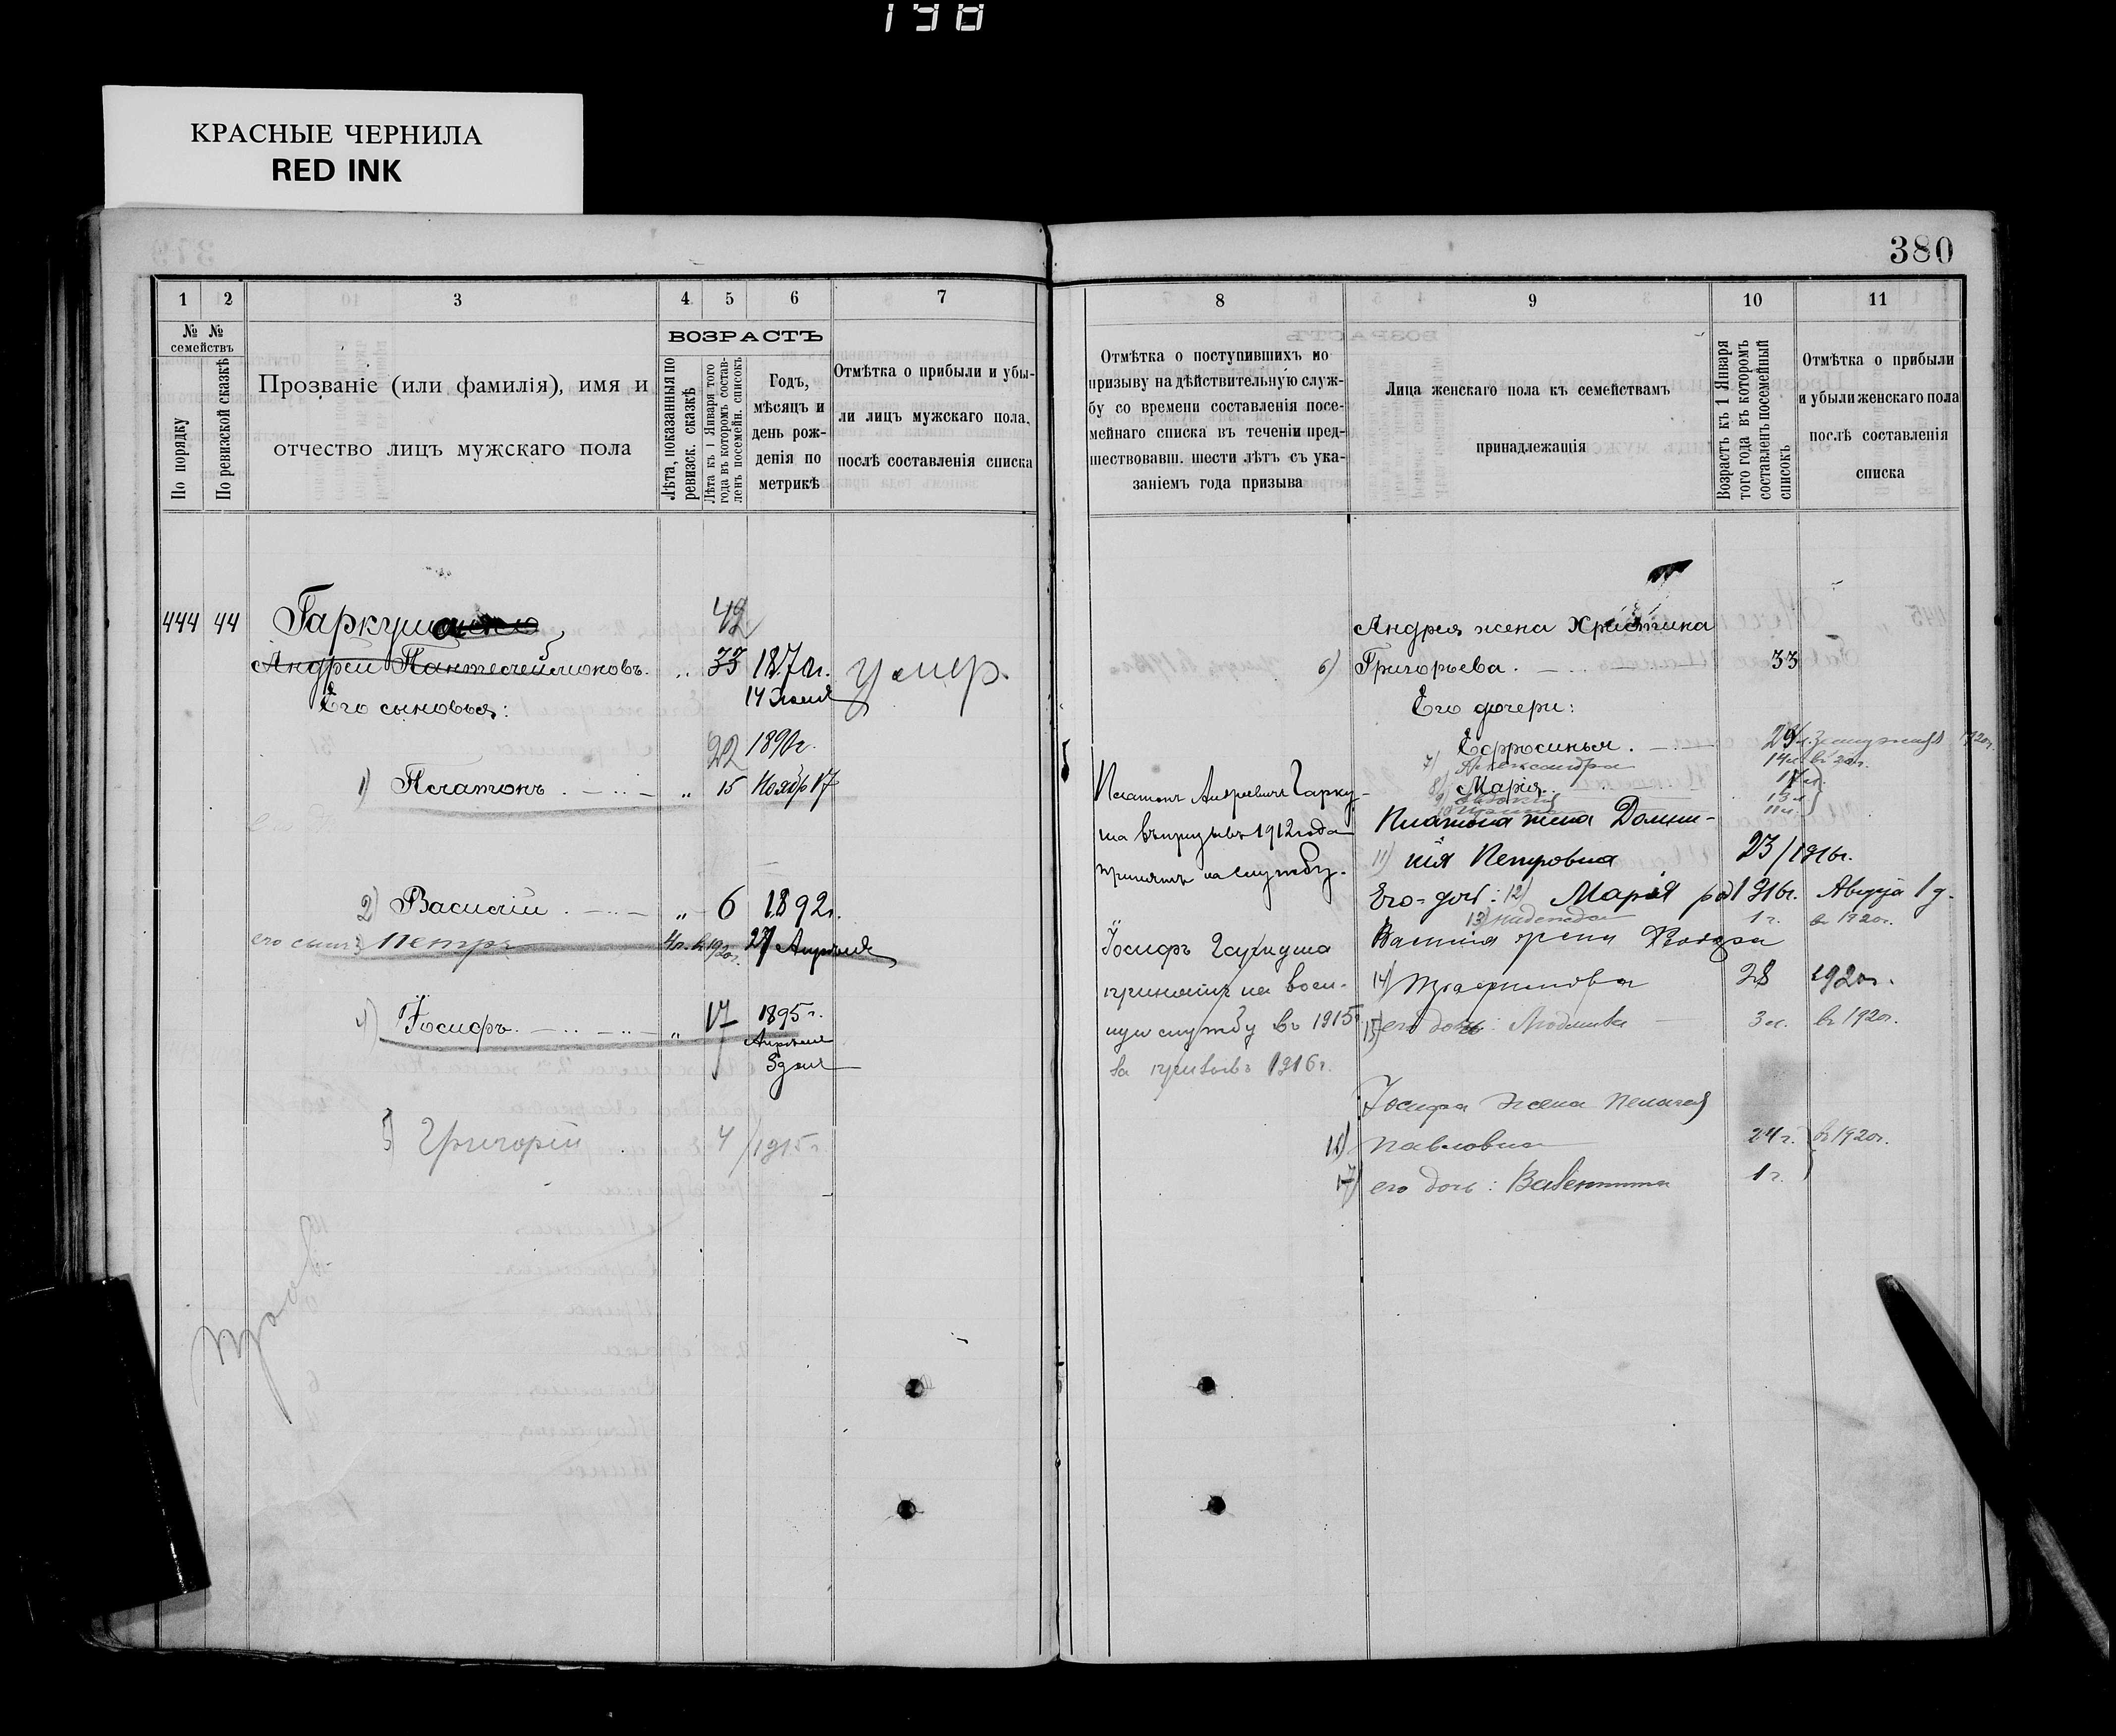 198
КРАСНЫЕ ЧЕРНИЛА
RED INK
380
1 2 3 4 5 6 7
№ № семействъ
По порядку
По ревизской сказкѣ
Прозваніе (или фамилія), имя и
отчество лицъ мужскаго пола
ВОЗРАСТЪ
Лѣта, показанныя по
ревизск. сказкѣ
Лѣта къ 1 Января того
года въ которомъ состав-
ленъ посемейн. списокъ
Годъ,
мѣсяцъ и
день рож-
денія по
метрикѣ
Отмѣтка о прибыли и убы-
ли лицъ мужскаго пола,
послѣ составленія списка
444 44 Гаркуша 42
Андрей Пантелеймоновъ. „ 33 187 г. умер.
14
Его сыновья:
22 189 г.
1) Платонъ „ 15 Ноябр 17
2) Василій „ 6 1892 г.
его сынъ 3) Петръ 4 л. в 1920 г. 27 Апрѣля
4) Іосифъ „ 17 1895 г.
Апрѣля
3 дня
5) Григорій 4 / 1915 г.
8 9 10 11
Отмѣтка о поступившихъ по
призыву на дѣйствительную служ-
бу со времени составленія посе-
мейнаго списка въ теченіи пред-
шествовавш. шести лѣтъ съ ука-
заніемъ года призыва
Лица женскаго пола къ семействамъ
принадлежащія
Возрастъ къ 1 Января
того года въ которомъ
составленъ посемейный
списокъ
Отмѣтка о прибыли
и убыли женскаго пола
послѣ составленія
списка
Андрея жена Христина
6) Григорьева. 33
Его дочери:
Ефросинья. замужем 1920 г.
7) Александра 14 л. в 20 г.
8) Марія.
13 л.
11 л.
Платонъ Андреевичъ Гарку-
ша въ призывъ 1912 года
принятъ на службу.
Платона жена Домни-
11) кія Петровна 23 / 1916 г.
Его дочь: 12) Марія род 1916 г. Августа 1 д.
13) Надежда 1 г. в 1920 г.
Іосифъ Гаркуша
принятъ на воен-
ную службу въ 1915 г.
въ призывъ 1916 г.
Василія жена
14) 28 1920 г.
15) его дочь: Людмила 3 л. в 1920 г.
Іосифа жена Пелагея
16) Павловна 24 г. в 1920 г.
17) его дочь: Валентина 1 г.